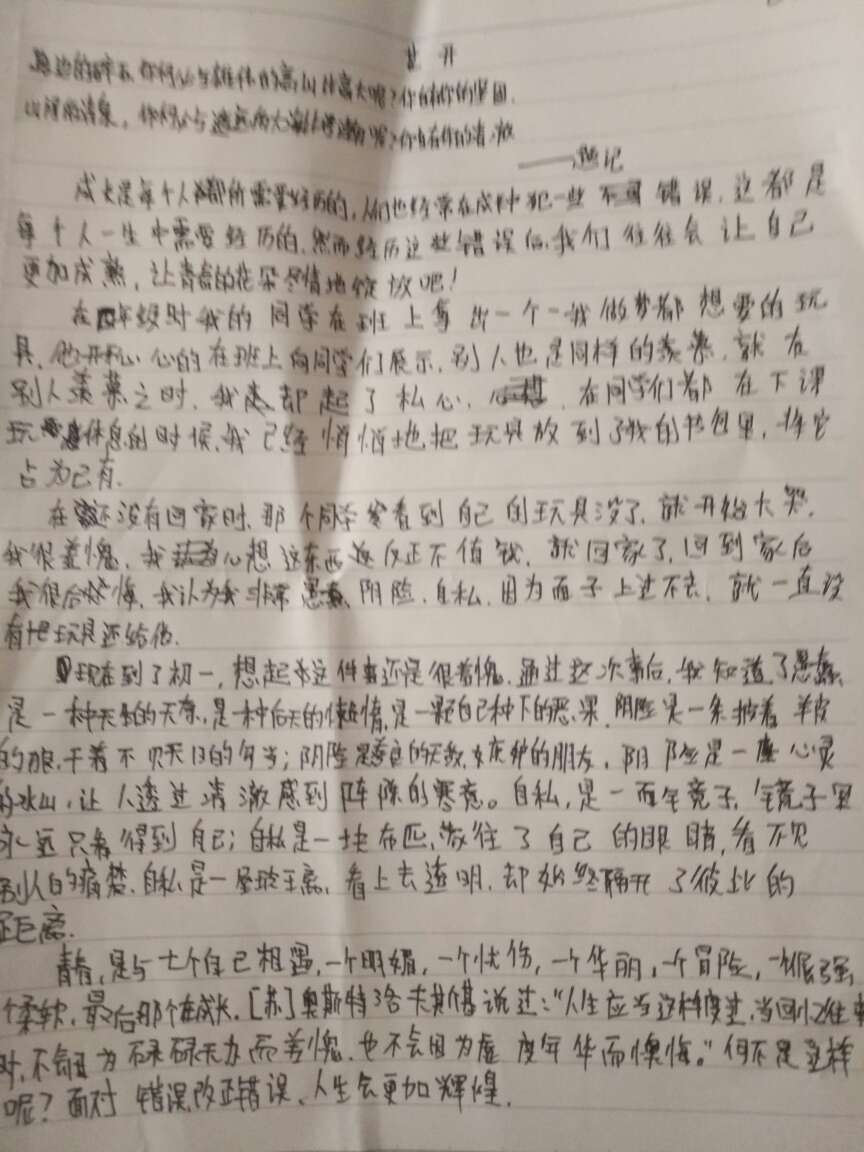 花开
路边的碎石,你何必与雄伟的高山比高大呢?你自有你的坚固.
山涧的清泉,你何必与遥远的大海比呢?你自有你的清澈
——题记
成长是每个人都所需要经历的,人们也经常在成长中犯一些错误,这都是
每个人一生中需要经历的.然而经历这些错误后,我们往往会让自己
更加成熟,让青春的花朵尽情地绽放吧!
在四年级时我的同学在班上拿出一个一我做梦都想要的玩
具,他开心心的在班上向同学们展示,别人也是同样的羡慕,就在
别人羡慕之时,我却起了私心,在同学们都在下课
玩休息的时候,我已经悄悄地把玩具放到了我的书包里,将它
占为己有.
在还没有回家时,那个同学看到自己的玩具没了,就开始大哭.
我很羞愧,我心想这东西反正不值钱,就回家了,回到家后
我很后悔,我认为我非常愚蠢,阴险,自私,因为面子上过不去,就一直没
有把玩具还给他.
现在到了初一,想起这件事还是很羞愧.通过这次事后,我知道了愚蠢
是一种天生的天奈,是一种后天的懒惰,是一颗自己种下的恶果.阴险是一条披着羊皮
的狼,干着不见天日的勾当;阴险是善良的天敌,嫉妒的朋友,阴险是一座心灵
的冰山,让人透过清澈感到阵阵的寒意。自私,是一面镜子,镜子里
永远只看得到自己;自私是一块布匹,蒙住了自己的眼睛,看不见
别人的痛楚.自私是一层玻璃,看上去透明,却始终隔开了彼此的
距离.
青春,是与七个自己相遇,一个明媚,一个忧伤,一个华丽,一个冒险,一个倔强,
个柔软,最后那个在成长.[苏]奥斯特洛夫斯基说过:“人生应当这样度过,当回忆往事
时,不会因为碌碌无为而羞愧.也不会因为虚度年华而懊悔。”何不是这样
呢?面对错误,改正错误、人生会更加辉煌.